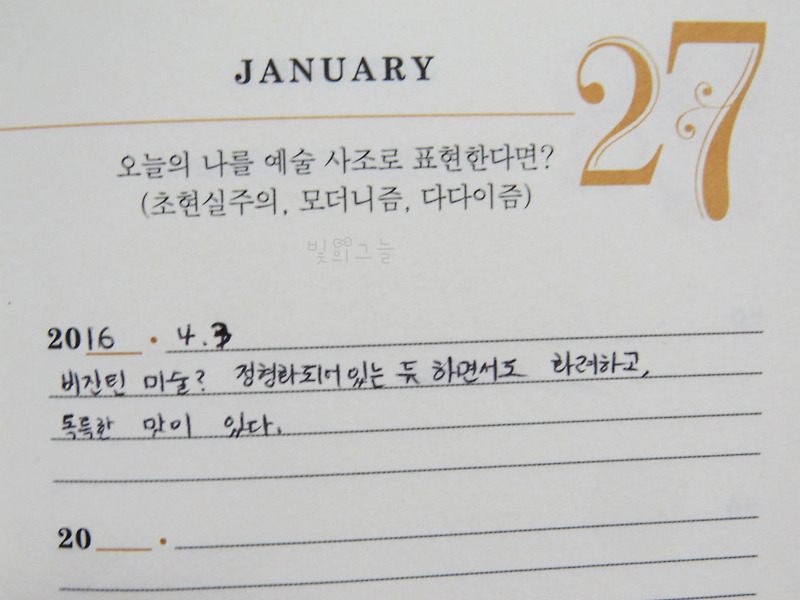 JANUARY
27
오늘의 나를 예술 사조로 표현한다면?
(초현실주의, 모더니즘, 다다이즘)
빛의그늘
2016 • 4.3
비잔틴 미술? 정형화되어있는 듯 하면서도 화려하고,
독특한 맛이 있다.
20 •